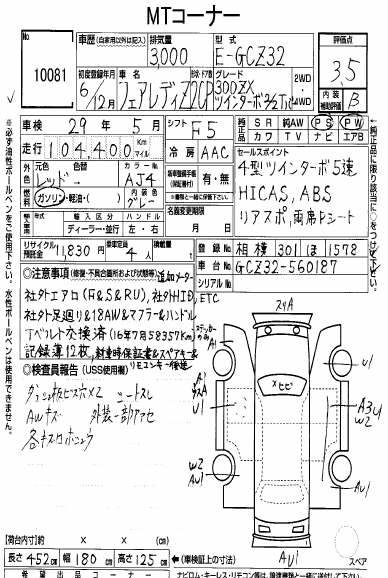 MTコーナー
10081
車歴(自家用以外は記入)
排気量
3,000
型式
E-GCZ32
評価点
3,5
初度登録年月
6/12月
車名
フェアレディZ
ドア・形状
2CP
グレード
300ZX
ツインターボ2/2Tバー
2WD
4WD
内装補助評価
B
車検 29年 5月
シフト F5
純正品
SR 純AW PS PW
カワ TV ナビ エアB
走行 104,400 Km マイル
冷房 AAC
セールスポイント
4型ツインターボ5速
HICAS, ABS
リアスポ, 両席Pシート
外装色
元色
レッド
色替
カラーNo.
AJ4
燃料
ガソリン・軽油・( )
内装色
グレー
有・無
名義変更期限
月 日
輸入区分
ディーラー・並行
ハンドル
左・右
リサイクル預託金
11,830円
乗車定員
4人
積載量
登録No. 相模 301 ほ 1578
車台No. GCZ32-560187
シリアルNo.
◎注意事項(修復・不具合箇所および状態等) 追加メーター
社外エアロ(F&S&RU), 社外HID, ETC
社外足廻り&18AW&マフラー&ハンドル
Tベルト交換済(16年7月58357km)
記録簿12枚, 新車時保証書&スペアキー&
リモコンキー
◎検査員報告(USS使用欄)
ダッシュ板ビス穴×2 シートスレ
AWキズ 外装一部アセ
各キズ
スリA
A1
×ヒビ
U1
U1
A3
U1
W2
W2
AU1
AU1
AU1
スペア
[荷台内寸] × × (cm)
長さ 452cm 幅 180cm 高さ 125cm ←(車検証上の寸法)
希望出品コーナー
ナビロム・キーレス・リモコン等は、譲渡書類と一緒に送付下さい。
※必ず油性ボールペンをご使用下さい。水性ボールペンは使用できません。